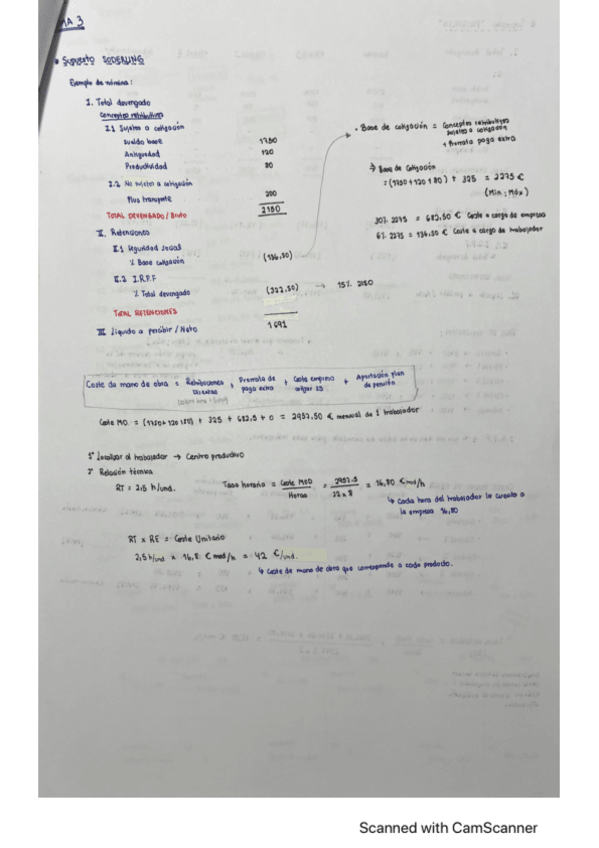 MA 3
• Supuesto SODERLING
Ejemplo de nómina:
I. Total devengado
Conceptos retributivos
I.1 Sujetos a cotización
Sueldo base 1750
Antigüedad 120
Productividad 80
I.2 No sujetos a cotización
Plus transporte 200
TOTAL DEVENGADO / Bruto 2150
II. Retenciones
II.1 Seguridad social
% Base cotización (136,50)
II.2 I.R.P.F
% Total devengado (322,50) → 15% 2150
TOTAL RETENCIONES
III. Líquido a percibir / Neto 1691
• Base de cotización = Conceptos retributivos
sujetos a cotización
+ Prorrata paga extra
→ Base de Cotización
= (1750+120+80) + 325 = 2275 €
(Mín ; Máx)
30% 2275 = 682,50 € Coste a cargo de empresa
6% 2275 = 136,50 € Coste a cargo de trabajador
Coste de mano de obra = Retribuciones + Prorrata de paga extra + Coste empresa + Aportación plan de pensión
Coste MO. = (1750+120+80) + 325 + 682,5 + 0 = 2957,50 € mensual de 1 trabajador
1º Localizar al trabajador → Centro productivo
2º Relación técnica
RT = 2,5 h/und.
Tasa horaria = Coste MOD / Horas = 2957.5 / 22 x 8 = 16,80 € mod/h
↳ Cada hora del trabajador le cuesta a
la empresa 16,80
RT x RE = Coste Unitario
2,5 h/und x 16,8 € mod/h = 42 €/und.
↳ Coste de mano de obra que corresponde a cada producto.
Scanned with CamScanner